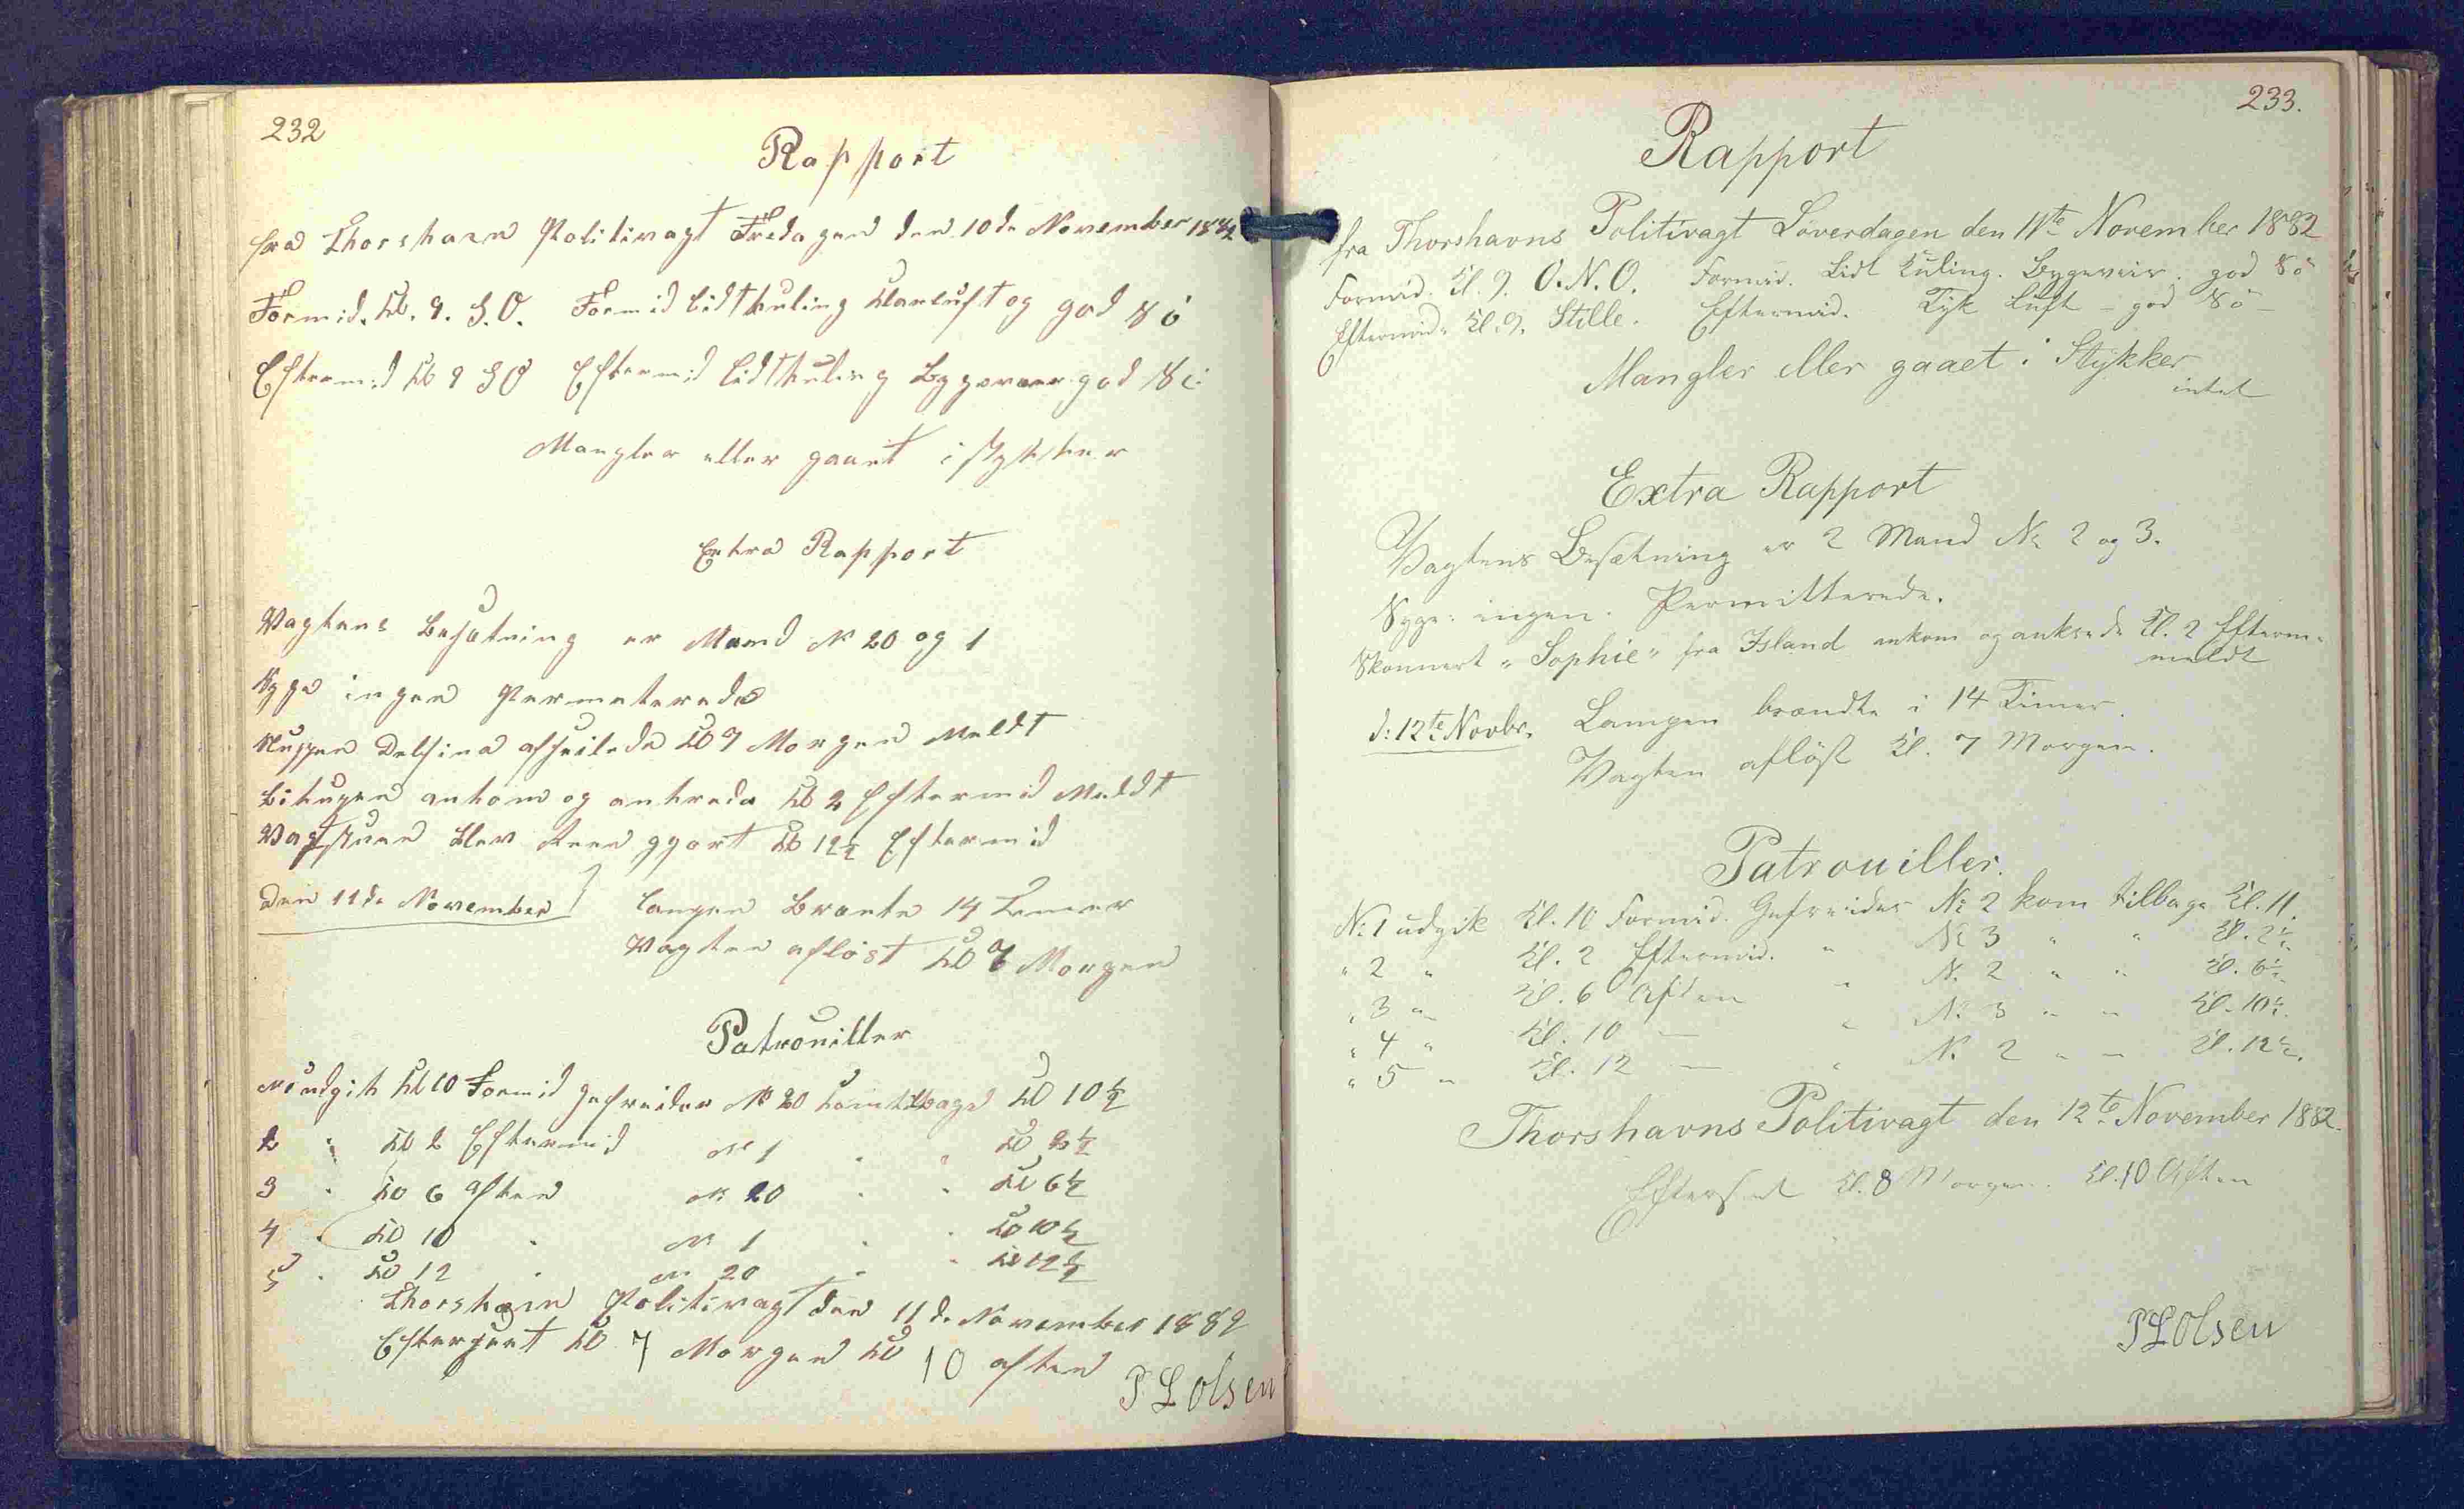 232
Rapport
fra Thorshavn Politivagt Fredagen den 10de November 1882
Formid. Kl. 9. S.O. Formid lidt kuling klarluft og god Sö
Eftermid Kl 9 SO Eftermid lidt kuling Bygeveer god Sö
Mangler eller gaaet i stykker
Extra Rapport
Vagtens Besætning er Mand N 20 og 1
Syge ingen Permeterede
Sluppen Delfina afseilede Kl 9 Morgen Meldt
ankom og ankrede Kl 2 Eftermid Meldt
Vagtstuen blev Reen gjort Kl 12½ Eftermid
Den 11de November Lampen Brænte 14 Temer
Vagten aflöst Kl 7 Morgen
Patrouiller
No 1 udgik Kl 10 Formid Gefreider N 20 kom tilbage Kl 10½
2 " Kl 2 Eftermid N 1 " " Kl 2½
3 " Kl 6 Aften N 20 " " Kl 6½
4 " Kl 10 " N 1 " " Kl 10½
5 " Kl 12 " N 20 " " Kl 12½
Thorshavn Politivagt den 11de November 1882
Efterseet Kl 7 Morgen Kl 10 aften
P L Olsen
233.
Rapport
fra Thorshavns Politivagt Löverdagen den 11te November 1882
Formid. Kl. 9. O.N.O. Formid. Lidt Kuling. Bygeveir. god Sö
Eftermid. Kl. 9. Stille. Eftermid. Tyk Luft - god Sö -
Mangler eller gaaet i Stykker
intet
Extra Rapport
Vagtens Besætning er 2 Mand No 2 og 3.
Syge: ingen. Permitterede.
Skonnert "Sophie" fra Island ankom og ankrede Kl. 2 Efterm.
meldt
d: 12te Novbr. Lampen brændte i 14 Timer.
Vagten aflöst Kl. 7 Morgen.
Patrouiller.
No 1 udgik Kl. 10 Formid. Gefreider No 2 kom tilbage Kl. 11.
" 2 " Kl. 2 Eftermid. " No 3 " " Kl. 2½.
" 3 " Kl. 6 Aften " No 2 " " Kl. 6½.
" 4 " Kl. 10 — " No 3 " " Kl. 10½.
" 5 " Kl. 12 — " No 2 " — Kl. 12½.
Thorshavns Politivagt den 12te November 1882.
Efterset Kl. 8 Morgen. Kl. 10 Aften
P L Olsen